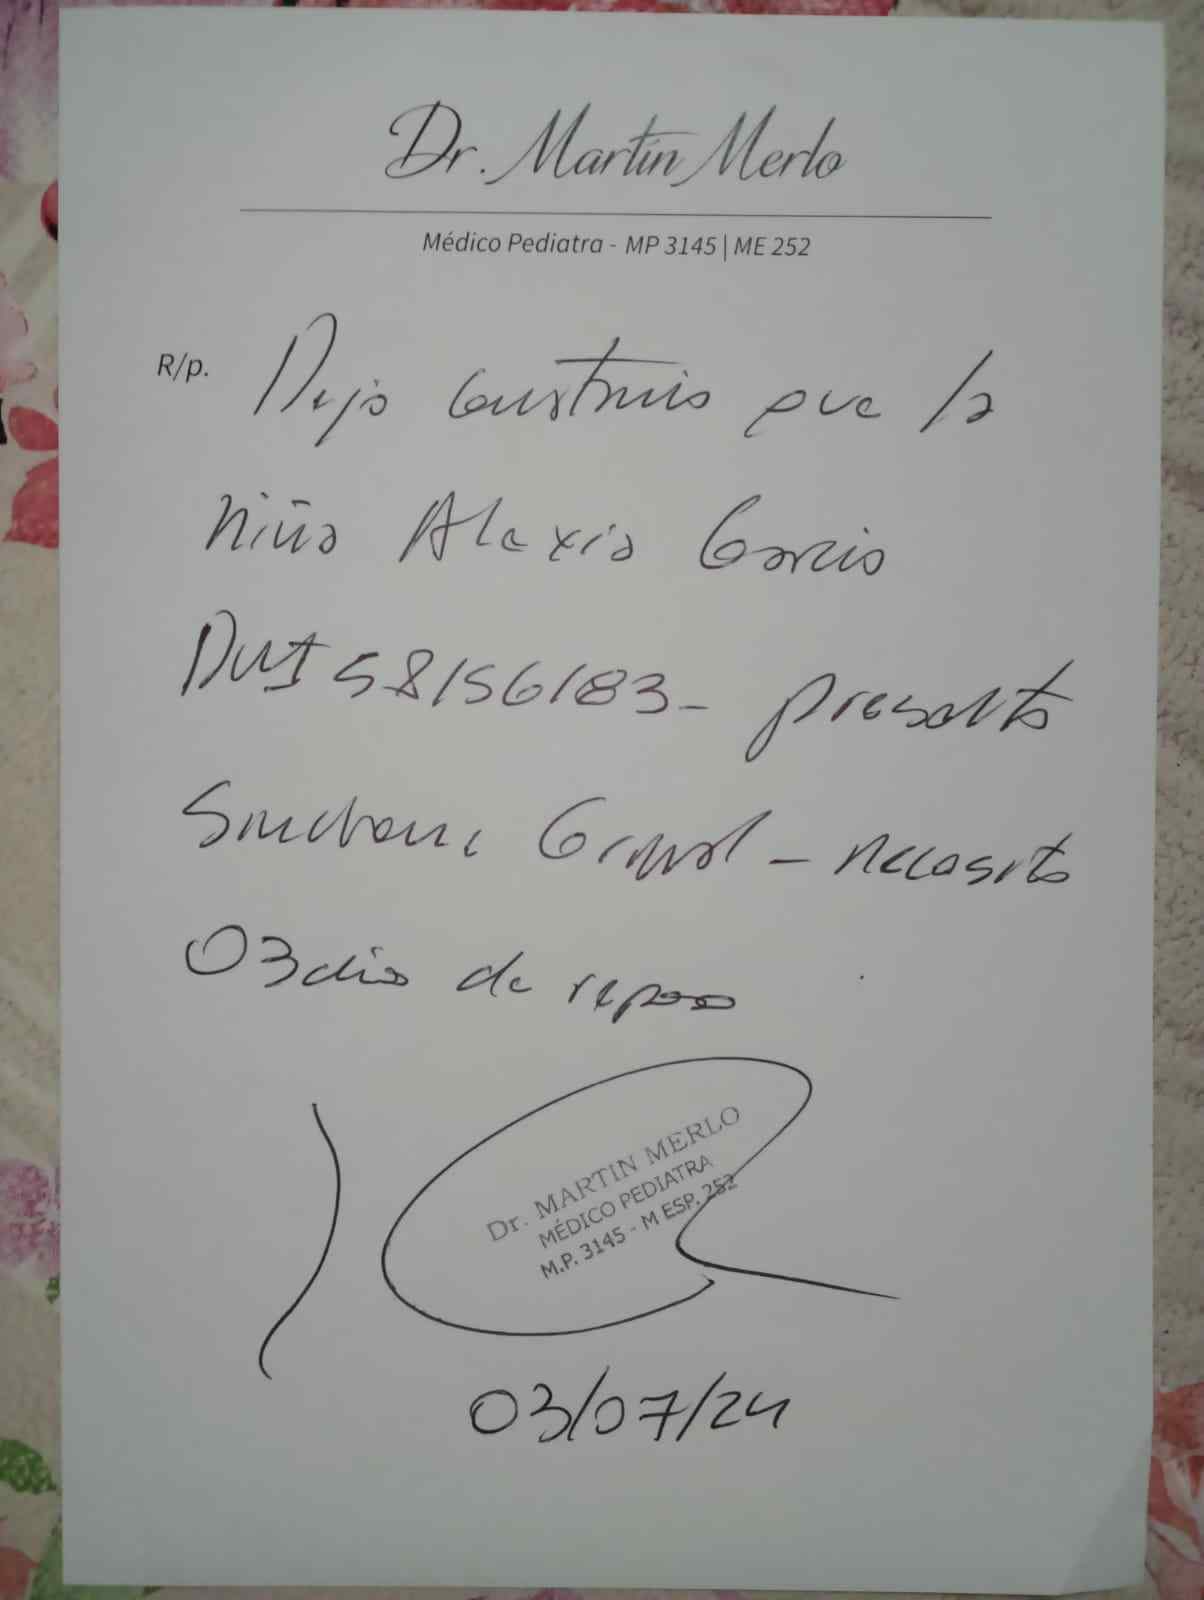 Dr. Martín Merlo
Médico Pediatra - MP 3145 | ME 252
R/p. Dejo constancia que la
niña Alexia Garcia
DNI 58156183_ presenta
Sindrome Gripal - necesita
03 dias de reposo
Dr. MARTIN MERLO
MÉDICO PEDIATRA
M.P. 3145 - M ESP. 252
03/07/24